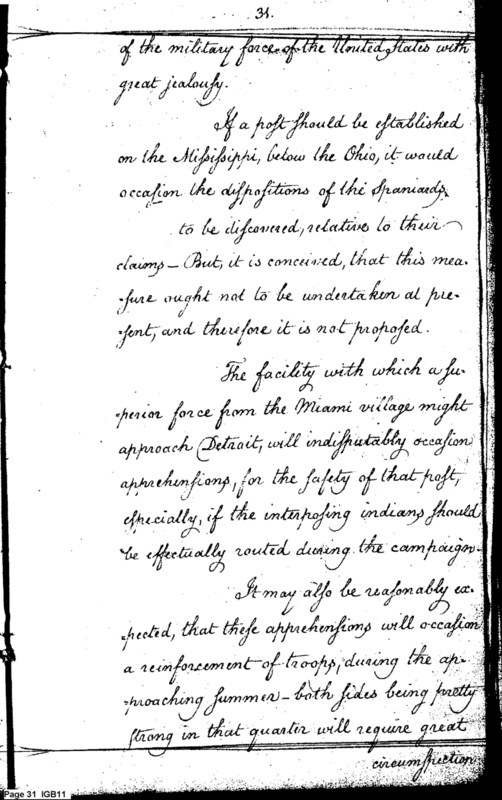 31.
of the military force of the United States with
great jealousy.
If a post should be established
on the Mississippi, below the Ohio, it would
occasion the dispositions of the Spaniards,
to be discovered, relative to their
claims — But, it is conceived, that this mea-
-sure ought not to be undertaken at pre-
-sent, and therefore it is not proposed.
The facility with which a su-
-perior force from the Miami village might
approach Detroit, will indisputably occasion
apprehensions, for the safety of that post,
especially, if the interposing indians should
be effectually routed during the campaign.
It may also be reasonably ex-
-pected, that these apprehensions will occasion
a reinforcement of troops, during the ap-
-proaching summer — both sides being pretty
strong in that quarter will require great
circumspection
Page 31 IGB11